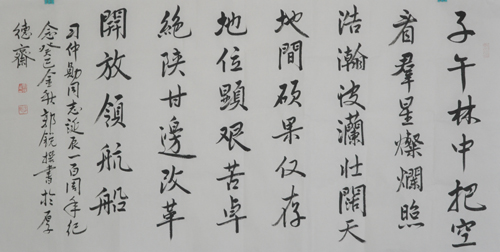 子午林中把空
看群星燦爛照
浩瀚波瀾壯闊天
地間碩果仅存
地位顯艰苦卓
絶陕甘邊改革
開放領航船
习仲勛同志誕辰一百周年纪
念癸巳金秋郭銳撰書於厚
德齋